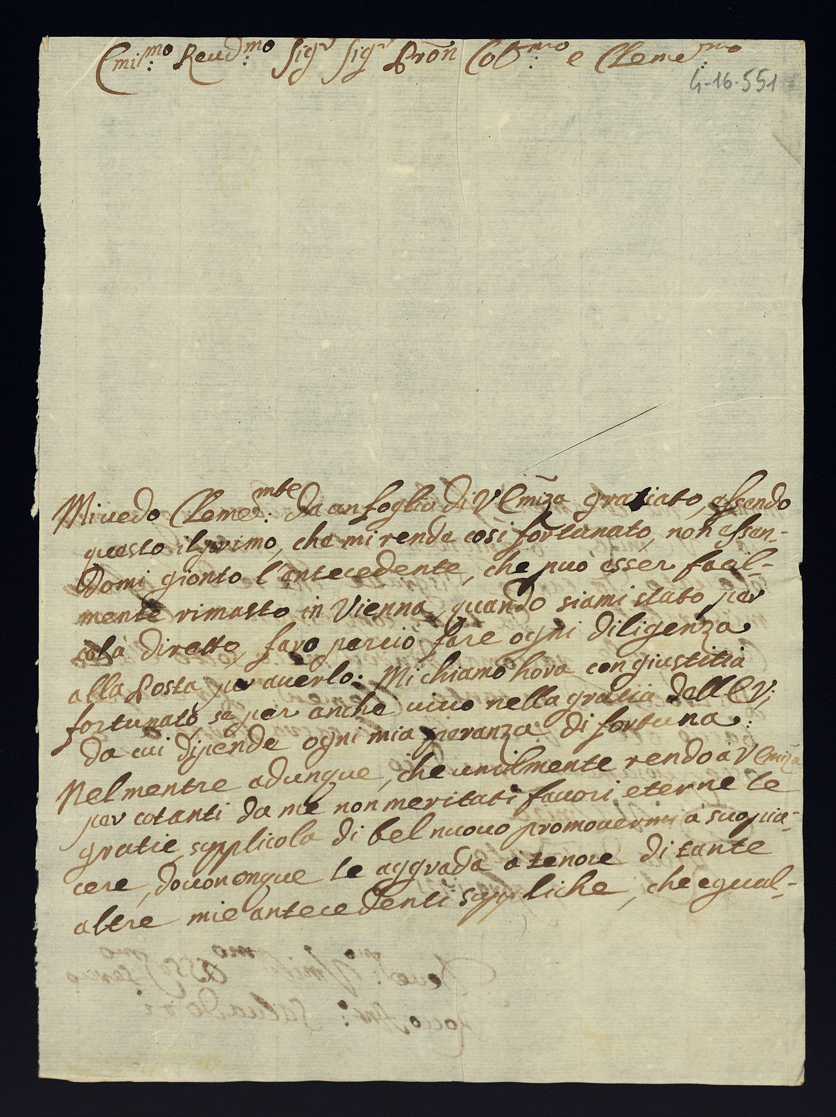 Emis:mo Reud:mo Sigr Sigr Prōn Col:mo e Cleme:mo
4-16-551
Mi uedo Cleme:mte da un foglio di V Emīza gratiato, essendo
questo il primo, che mi rende così fortunato, non essen-
domi gionto l'antecedente, che può esser facil-
mente rimasto in Vienna, quando siami stato per
colà diretto, farò perciò fare ogni diligenza
alla Posta per auerlo. Mi chiamo hora con giustitia
fortunato, se per anche uiuo nella gratia dell' E V:
da cui dipende ogni mia speranza di fortuna.
Nel mentre adunque, che umilmente rendo a V Emīza
per cotanti da me non meritati fauori eterne le
gratie, supplicola di bel nuouo promouermi à suo pia-
cere, douonque le aggrada a tenore di tante
altre mie antecedenti suppliche, che egual-